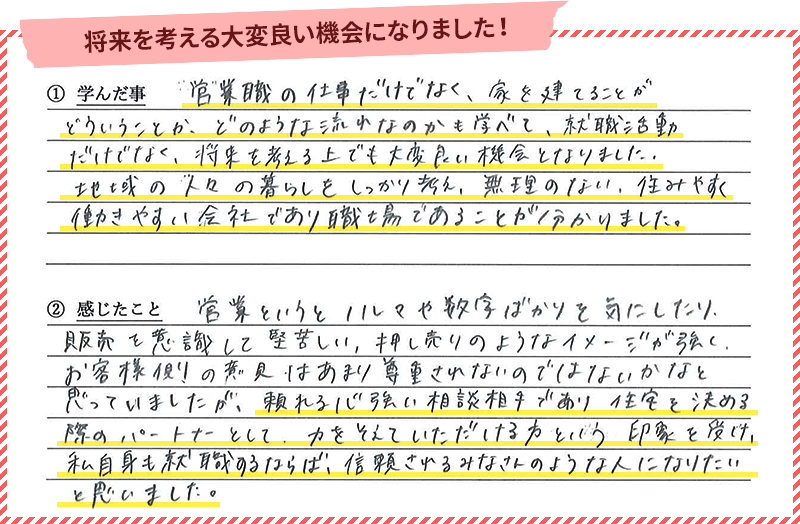 将来を考える大変良い機会になりました！
① 学んだ事 営業職の仕事だけでなく、家を建てることが
どういうことか、どのような流れなのかも学べて、就職活動
だけでなく、将来を考える上でも大変良い機会となりました。
地域の人々の暮らしをしっかり考え、無理のない、住みやすく
働きやすい会社であり職場であることが分かりました。
② 感じたこと 営業というとノルマや数字ばかりを気にしたり、
販売を意識して堅苦しい、押し売りのようなイメージが強く、
お客様側の意見はあまり尊重されないのではないかなと
思っていましたが、頼れる心強い相談相手であり住宅を決める
際のパートナーとして、力をそえていただける方という印象を受け、
私自身も就職するならば、信頼されるみなさんのような人になりたい
と思いました。